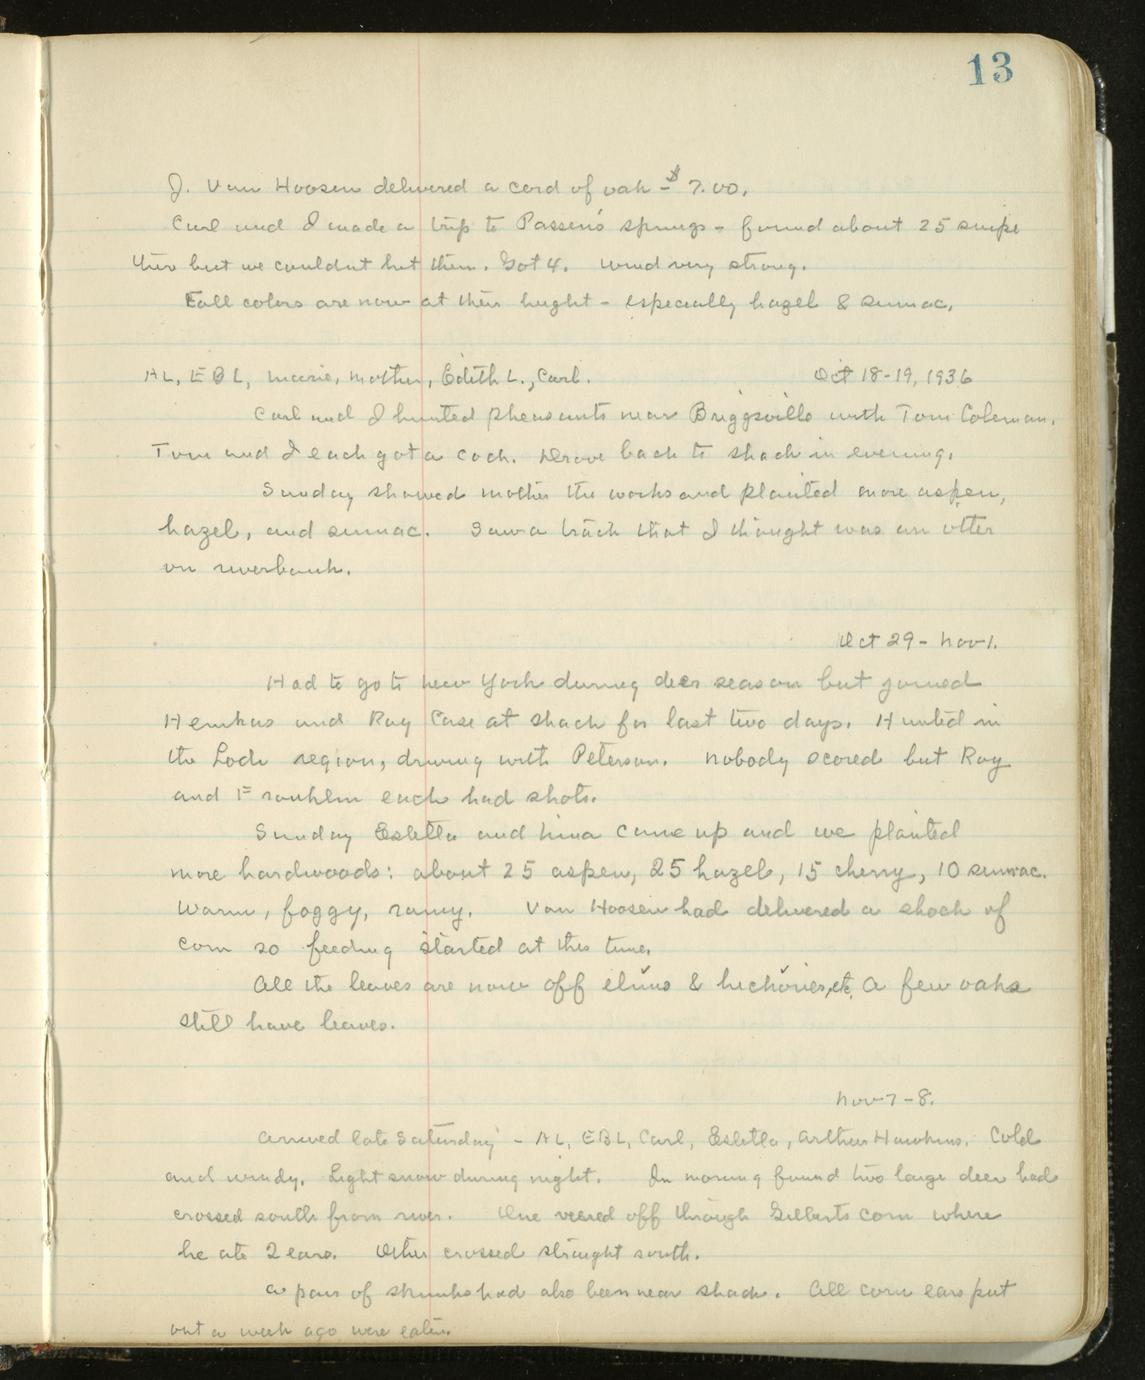 13
J. Van Hoosen delivered a cord of oak - $7.00.
Carl and I made a trip to Passen's springs - found about 25 snipe
there but we couldnt hit them. Got 4. Wind very strong.
Fall colors are now at their height - especially hazel & sumac.
AL, EBL, Marie, Mother, Edith L., Carl. Oct 18-19, 1936
Carl and I hunted pheasants near Briggsville with Tom Coleman.
Tom and I each got a cock. Drove back to shack in evening.
Sunday showed mother the works and planted more aspen,
hazel, and sumac. Saw a track that I thought was an otter
on riverbank.
Oct 29 - Nov 1.
Had to go to New York during deer season but joined
Hemkas and Ray Case at shack for last two days. Hunted in
the Lodi region, driving with Peterson. Nobody scored but Ray
and each had shots.
Sunday Estella and Nina came up and we planted
more hardwoods: about 25 aspen, 25 hazel, 15 cherry, 10 sumac.
Warm, foggy, rainy. Van Hoosen had delivered a shock of
corn so feeding started at this time.
All the leaves are now off elms & hickories, etc. A few oaks
still have leaves.
Nov 7-8.
Arrived late Saturday - AL, EBL, Carl, Estella, Arthur Hawkins. Cold
and windy. Light snow during night. In morning found two large deer had
crossed south from river. One veered off through Gilberts corn where
he ate 2 ears. Other crossed straight south.
A pair of skunks had also been near shack. All corn ears put
out a week ago were eaten.